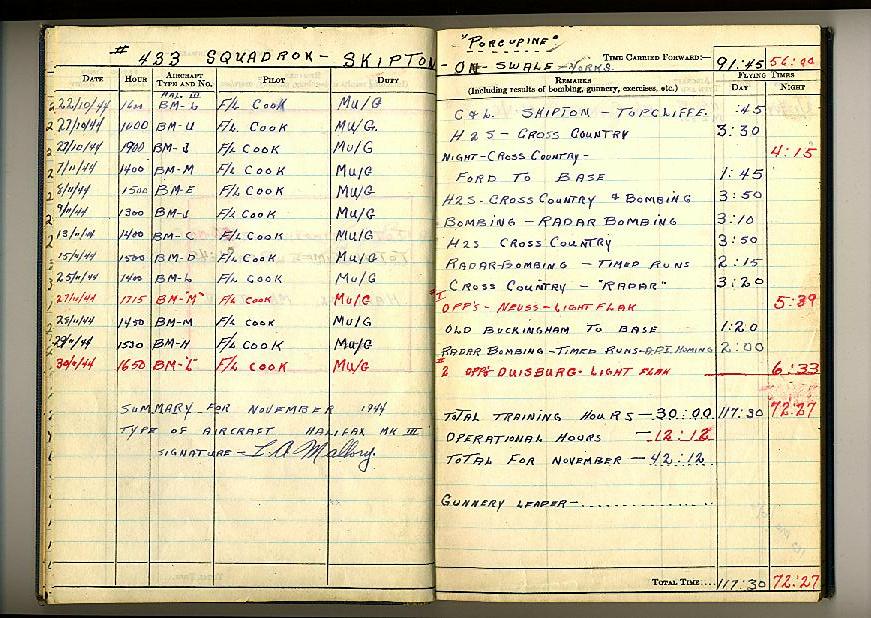 "PORCUPINE"
# 433 SQUADRON - SKIPTON
- ON - SWALE - YORKS.
TIME CARRIED FORWARD:— 91:45 56:00
DATE HOUR AIRCRAFT TYPE AND NO. PILOT DUTY
REMARKS (Including results of bombing, gunnery, exercises, etc.) FLYING TIMES DAY NIGHT
HAL. III
22/10/44 BM-L F/L COOK MU/G C & L. SKIPTON - TOPCLIFFE. :45
27/10/44 1600 BM-U F/L COOK MU/G. H2S - CROSS COUNTRY 3:30
1900 BM-J F/L COOK MU/G NIGHT-CROSS COUNTRY- 4:15
7/11/44 1400 BM-M F/L COOK MU/G FORD TO BASE 1:45
1500 BM-E F/L COOK MU/G H2S-CROSS COUNTRY & BOMBING 3:50
9/11/44 1300 BM-J F/L COOK MU/G BOMBING - RADAR BOMBING 3:10
13/11/44 1400 BM- F/L COOK MU/G H2S CROSS COUNTRY 3:50
15/11/44 1500 BM-D F/L COOK MU/G RADAR-BOMBING - TIMED RUNS 2:15
25/11/44 1400 BM-L F/L COOK MU/G CROSS COUNTRY - "RADAR" 3:20
27/11/44 1715 BM-"M" F/L COOK MU/G #1 OPP'S - NEUSS-LIGHT FLAK 5:39
1450 BM-M F/L COOK MU/G OLD BUCKINGHAM TO BASE 1:20
29/11/44 1530 BM-H F/L COOK MU/G RADAR BOMBING-TIMED RUNS-D.P.I. HOMING 2:00
30/11/44 1650 BM-"L" F/L COOK MU/G #2 OPP'S DUISBURG-LIGHT FLAK 6:33
SUMMARY FOR NOVEMBER 1944 TOTAL TRAINING HOURS — 30:00 117:30 72:27
TYPE OF AIRCRAFT HALIFAX MK III OPERATIONAL HOURS — 12:12
SIGNATURE - L A Mallory. TOTAL FOR NOVEMBER — 42:12
GUNNERY LEADER-..............
TOTAL TIME.... 117:30 72:27